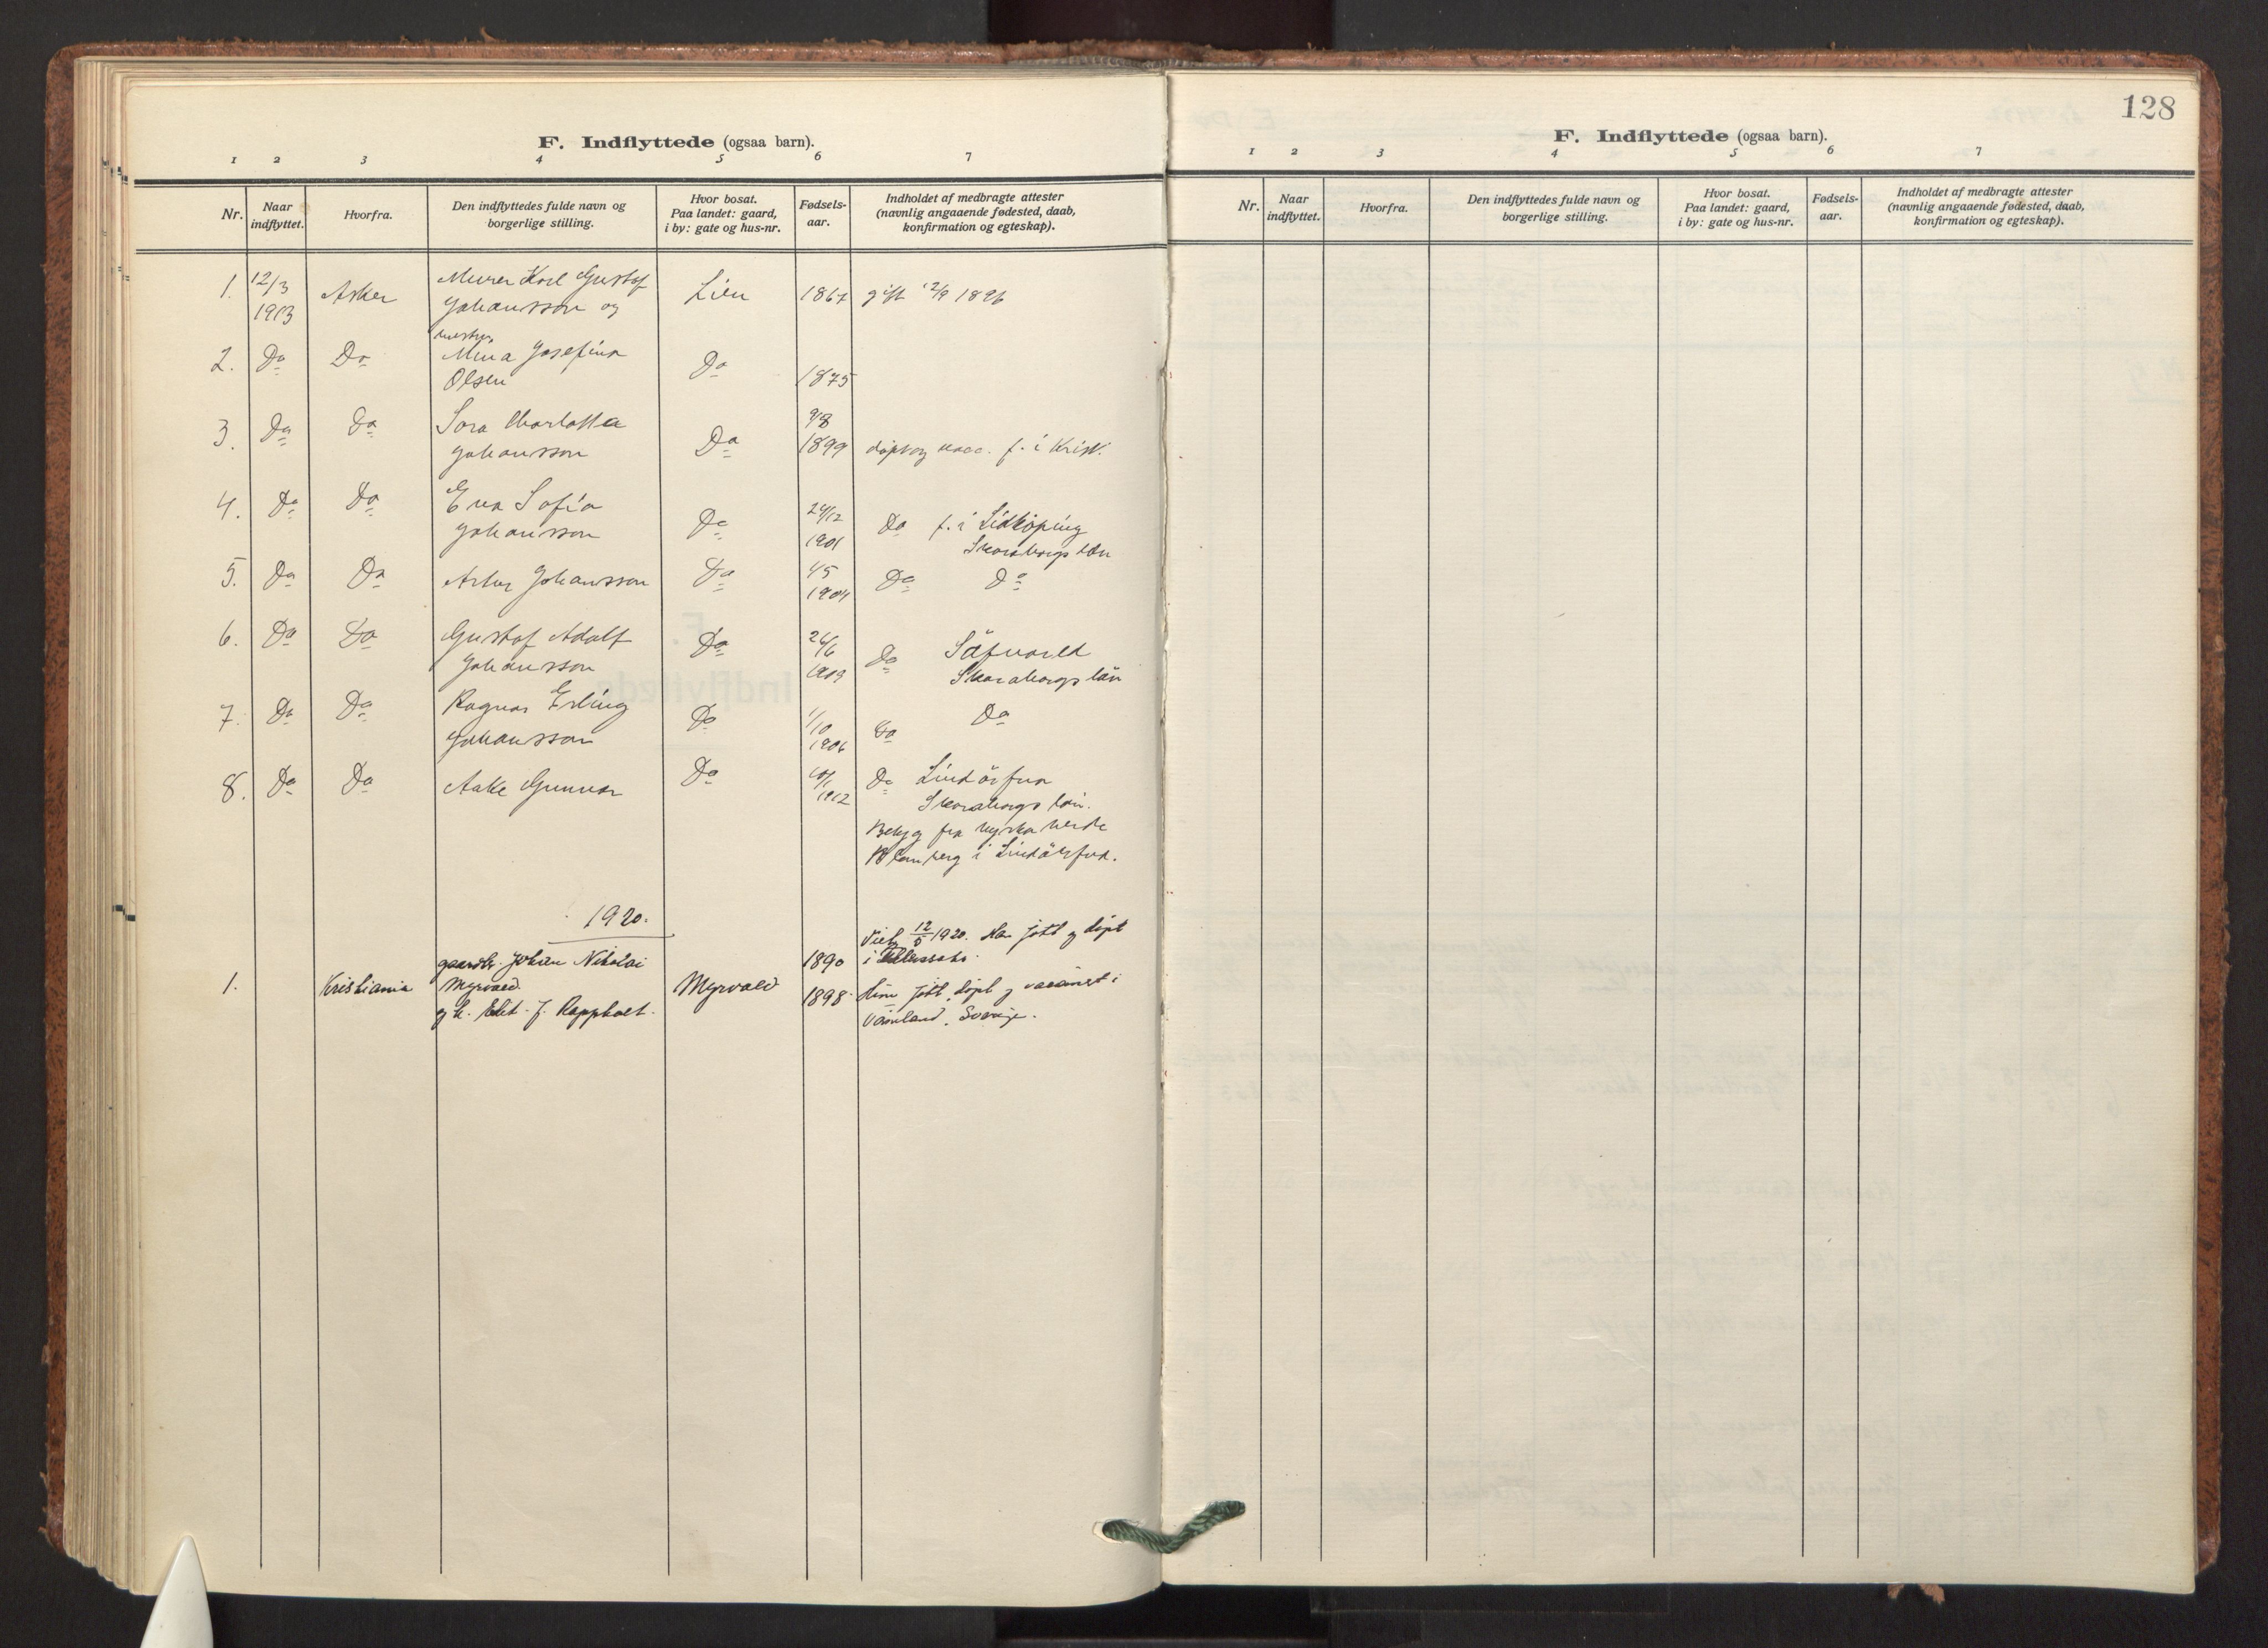 F. Indflyttede (ogsaa barn).
1 2 3 4 5 6 7
Nr. Naar indflyttet. Hvorfra. Den indflyttedes fulde navn og borgerlige stilling. Hvor bosat. Paa landet: gaard, i by: gate og hus-nr. Fødsels-aar. Indholdet af medbragte attester (navnlig angaaende fødested, daab, konfirmation og egteskap).
1. 12/3 1913 Asker Murer Karl Gustof Johansson og Lien 1867 gift 12/9 1896
hustru
2. Do Do Mina Josefina Olsen Do 1875
3. Do Do Sara Charlotta Johansson Do 9/8 1899 døpt og vacc. f. i Krist.
4. Do Do Eva Sofia Johansson Do 24/12 1901 Do f. i Lidköping Skaraborgs län
5. Do Do Artur Johansson Do 4/5 1904 Do Do
6. Do Do Gustof Adolf Johansson Do 26/6 1909 Do Skaraborgs län
7. Do Do Ragnar Erling Johansson Do 1/10 1906 Do Do
8. Do Do Aake Gunnar Do 1912 Do Skaraborgs län.
fra
i
1920.
1. Kristiania gaardbr. Johan Nikolai Myrvold Myrvold 1890 Viet 12/5 1920. Han født og døpt i
og h. f. 1898 Hun født, døpt og vaccinert i Värmland, Sverige.
128
F. Indflyttede (ogsaa barn).
1 2 3 4 5 6 7
Nr. Naar indflyttet. Hvorfra. Den indflyttedes fulde navn og borgerlige stilling. Hvor bosat. Paa landet: gaard, i by: gate og hus-nr. Fødsels-aar. Indholdet af medbragte attester (navnlig angaaende fødested, daab, konfirmation og egteskap).